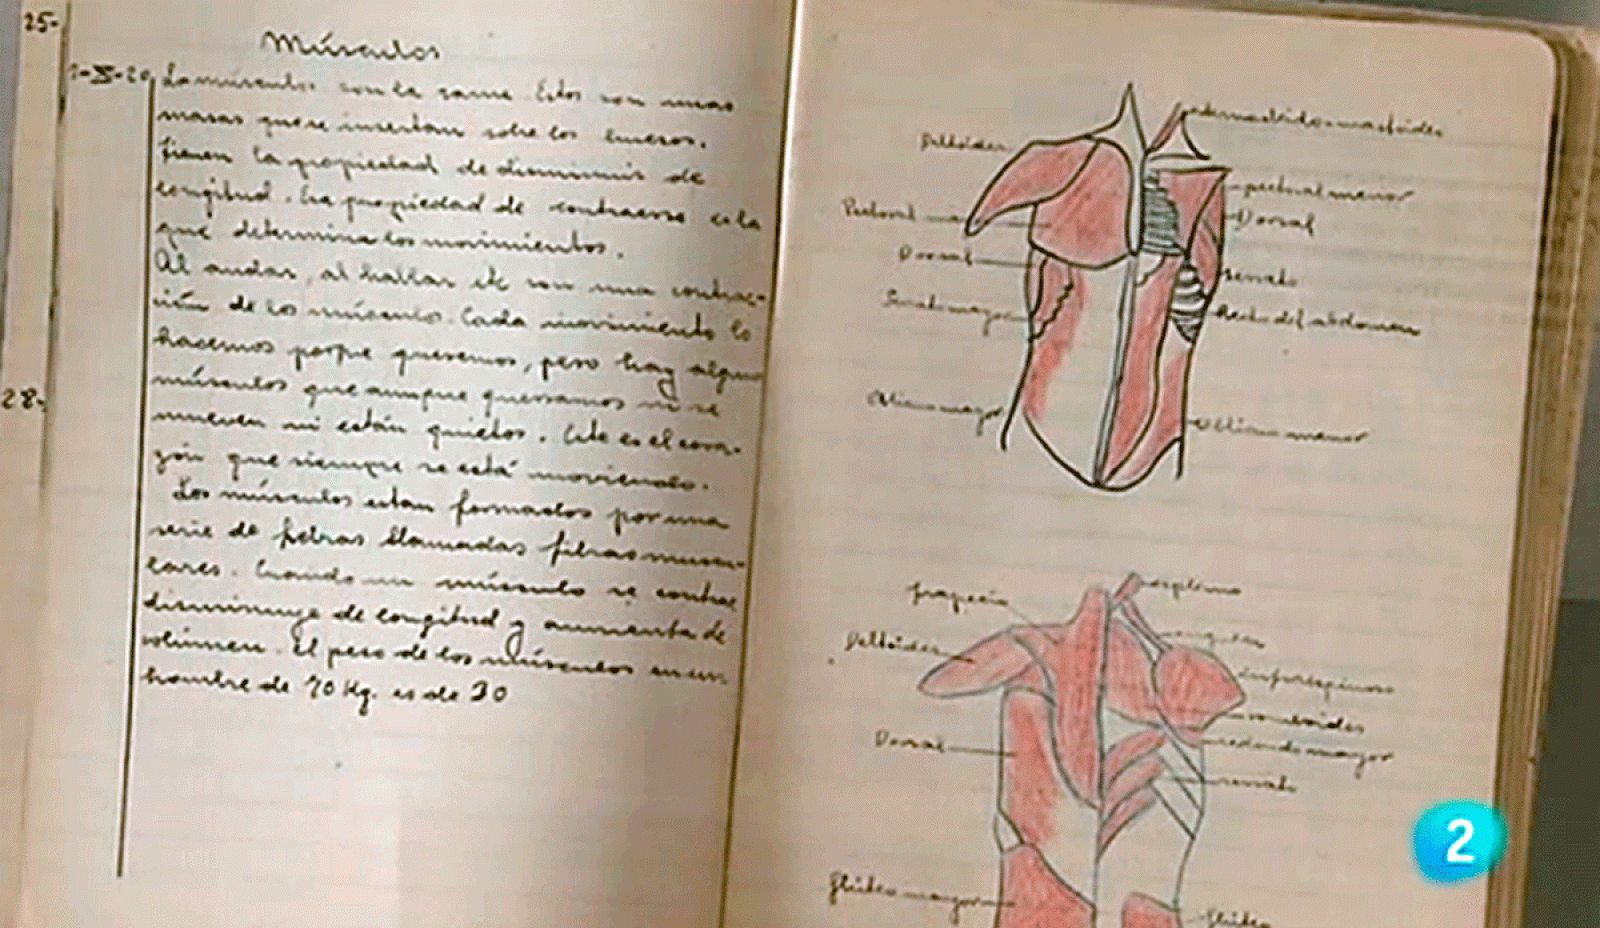 25-
Músculos
Los músculos son la carne. Estos son unas
masas que se insertan sobre los huesos.
Tienen la propiedad de disminuir de
longitud. La propiedad de contraerse es la
que determina los movimientos.
Al andar, al hablar etc son una contrac-
ción de los músculos. Cada movimiento lo
hacemos porque queremos, pero hay algunos
28-
músculos que aunque queramos ni se
mueven ni están quietos. Este es el cora-
zón que siempre se está moviendo.
Los músculos estan formados por una
serie de hebras llamadas fibras muscu-
lares. Cuando un músculo se contrae
disminuye de longitud y aumenta de
volúmen. El peso de los músculos en un
hombre de 70 Kg. es de 30
Deltóides
Pectoral
Dorsal
Serrato mayor
Oblicuo mayor
pectoral menor
Dorsal
serrato
Recto del abdomen
Oblicuo menor
trapecio
Deltóides
Dorsal
Glúteo mayor
esplenio
angular
infraespinoso
romboides
redondo mayor
serrato
Glúteo
2